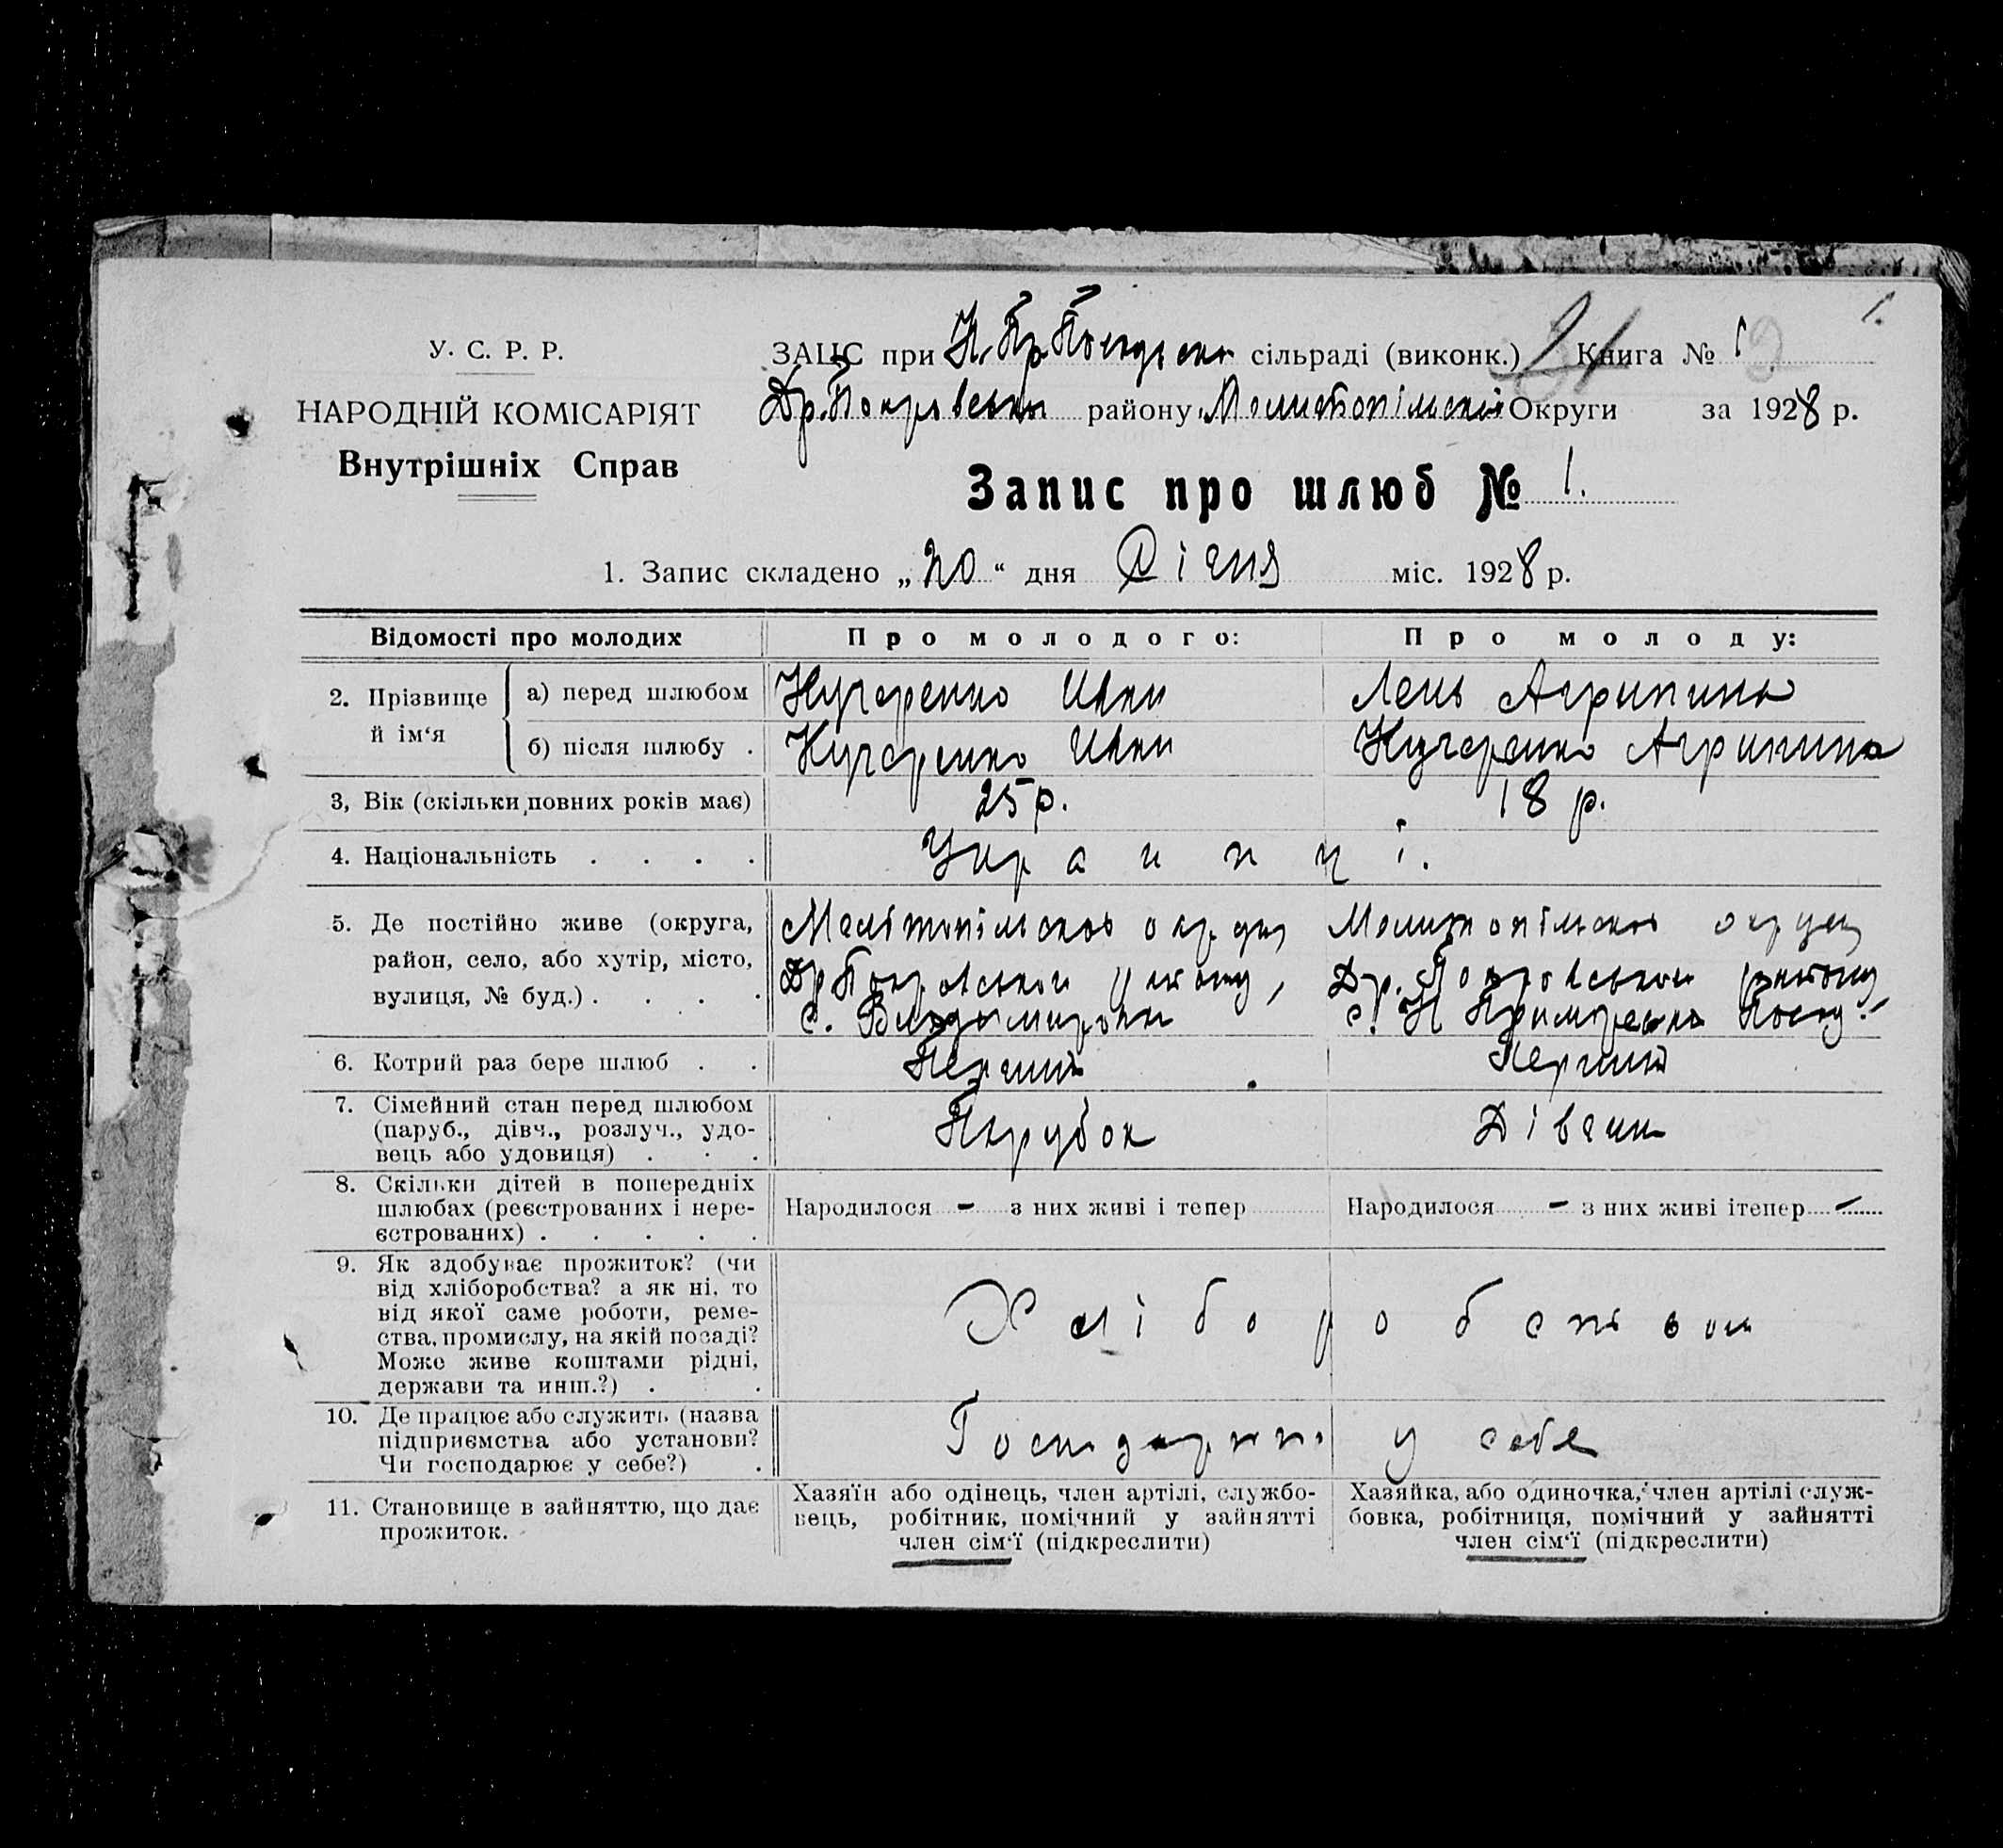 1.
У. С. Р. Р.
ЗАЦС при Н. Пр. Посадськ сільраді (виконк.) 21 Книга № 1
НАРОДНІЙ КОМІСАРІЯТ
Др. Покровськ району, Мелитопільской Округи за 1928 р.
Внутрішніх Справ
Запис про шлюб № 1.
1. Запис складено „20“ дня Січня міс. 1928 р.
Відомості про молодих Про молодого: Про молоду:
2. Прізвище й ім‘я
а) перед шлюбом Кучеренко Иван Лень Агрипина
б) після шлюбу . Кучеренко Иван Кучеренко Агрипина
3, Вік (скільки повних років має) 25 р. 18 р.
4. Національність . . . . Украинці.
5. Де постійно живе (округа,
район, село, або хутір, місто,
вулиця, № буд.) . . . .
Мелітопільскоі округи
Др Покровськои району,
с. Владимировки
Мелитопільскоі округи
Др. Покровськои району,
с. Н Приморська Посад.
6. Котрий раз бере шлюб . . Перший Перший
7. Сімейний стан перед шлюбом
(паруб., дівч., розлуч., удо-
вець або удовиця) . . .
Парубок Дівчин
8. Скільки дітей в попередніх
шлюбах (реєстрованих і нере-
єстрованих) . . . . .
Народилося - з них живі і тепер
Народилося - з них живі ітепер -
9. Як здобуває прожиток? (чи
від хліборобства? а як ні, то
від якої саме роботи, реме-
ства, промислу, на якій посаді?
Може живе коштами рідні,
держави та инш.?) . .
Хліборобством
10. Де працює або служить (назва
підприємства або установи?
Чи господарює у себе?) .
у себе
11. Становище в зайняттю, що дає
прожиток.
Хазяїн або одінець, член артілі, службо-
вець, робітник, помічний у зайнятті
член сім‘ї (підкреслити)
Хазяйка, або одиночка, член артілі служ-
бовка, робітниця, помічний у зайнятті
член сім‘ї (підкреслити)